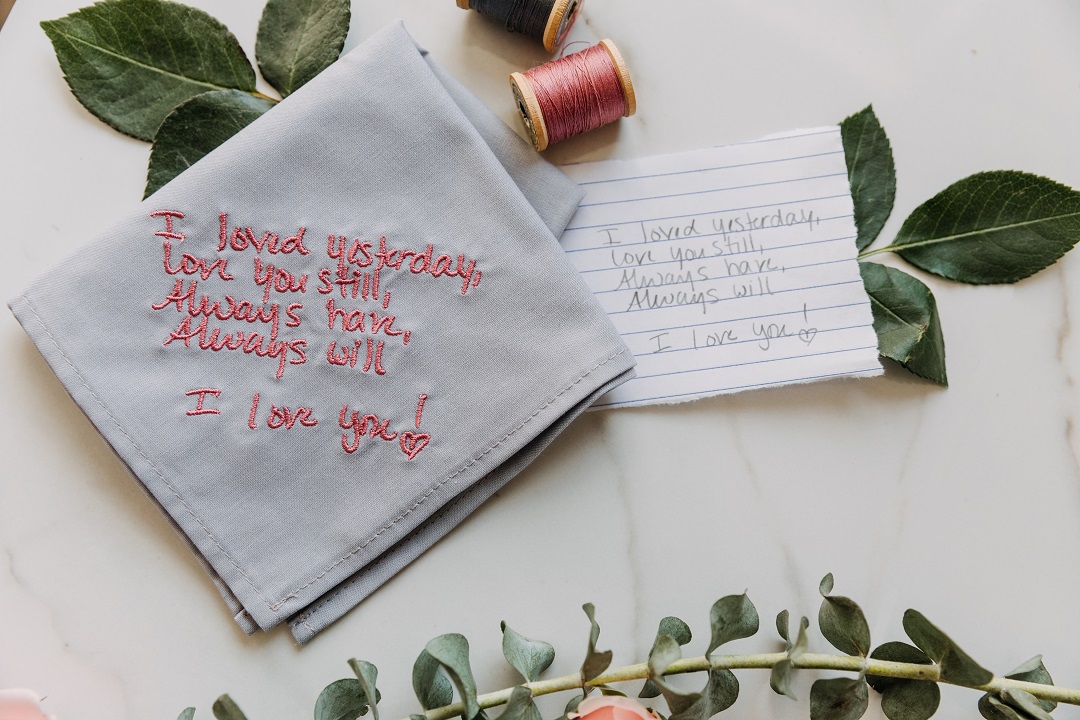 I loved yesterday,
love you still,
Always have,
Always will
I love you!
I loved yesterday,
love you still,
Always have,
Always will
I love you!